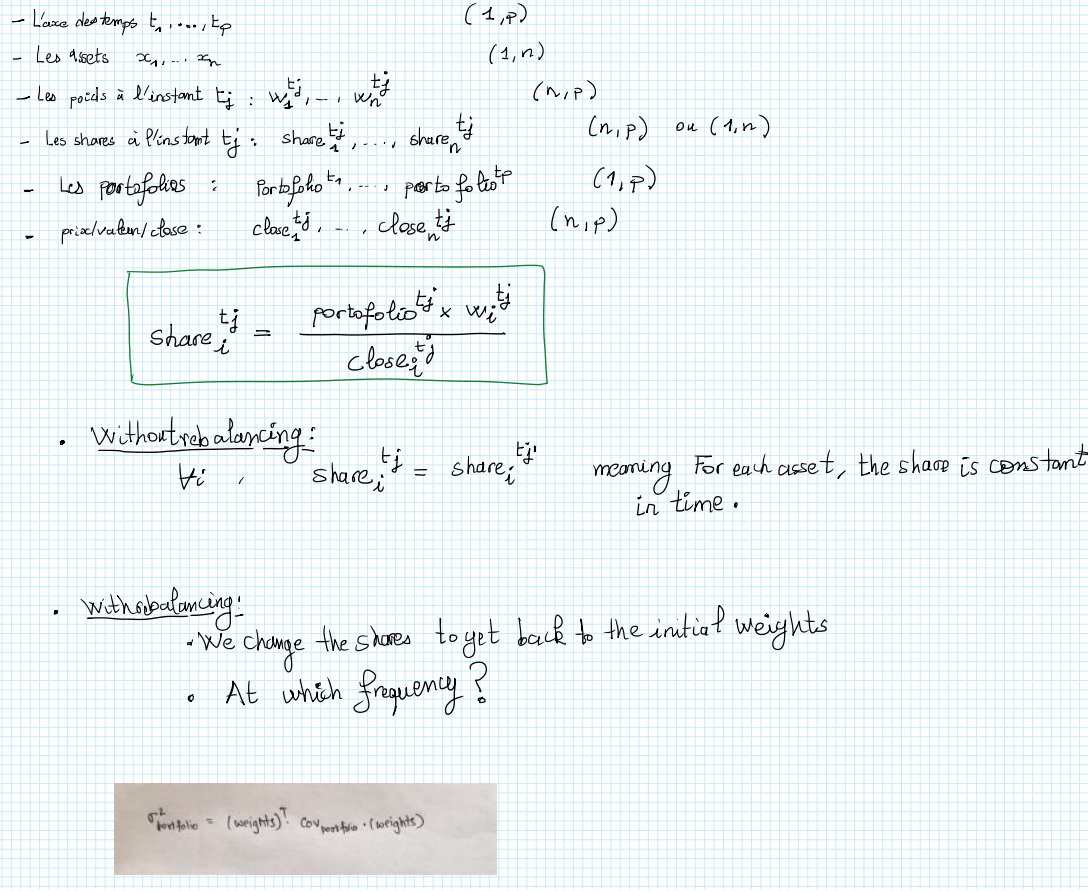 - L'axe des temps t₁, ...., tₚ (1,p)
- Les assets x₁, ... xₙ (1,n)
- Les poids à l'instant tⱼ : w₁^tj, -, wₙ^tj (n,p)
- Les shares à l'instant tⱼ : share₁^tj, ..., shareₙ^tj (n,p) ou (1,n)
- Les portofolios : Portofolio^t₁, ...., portofolio^tp (1,p)
- prix/valeur/close : close₁^tj, -.., closeₙ^tj (n,p)
shareᵢ^tj = (portofolio^tj × wᵢ^tj) / closeᵢ^tj
• Without rebalancing :
∀i, shareᵢ^tj = shareᵢ^tj' meaning For each asset, the share is constant
in time.
• With rebalancing :
• We change the shares to get back to the initial weights
• At which frequency ?
σ²portfolio = (weights)ᵀ · Covportfolio · (weights)